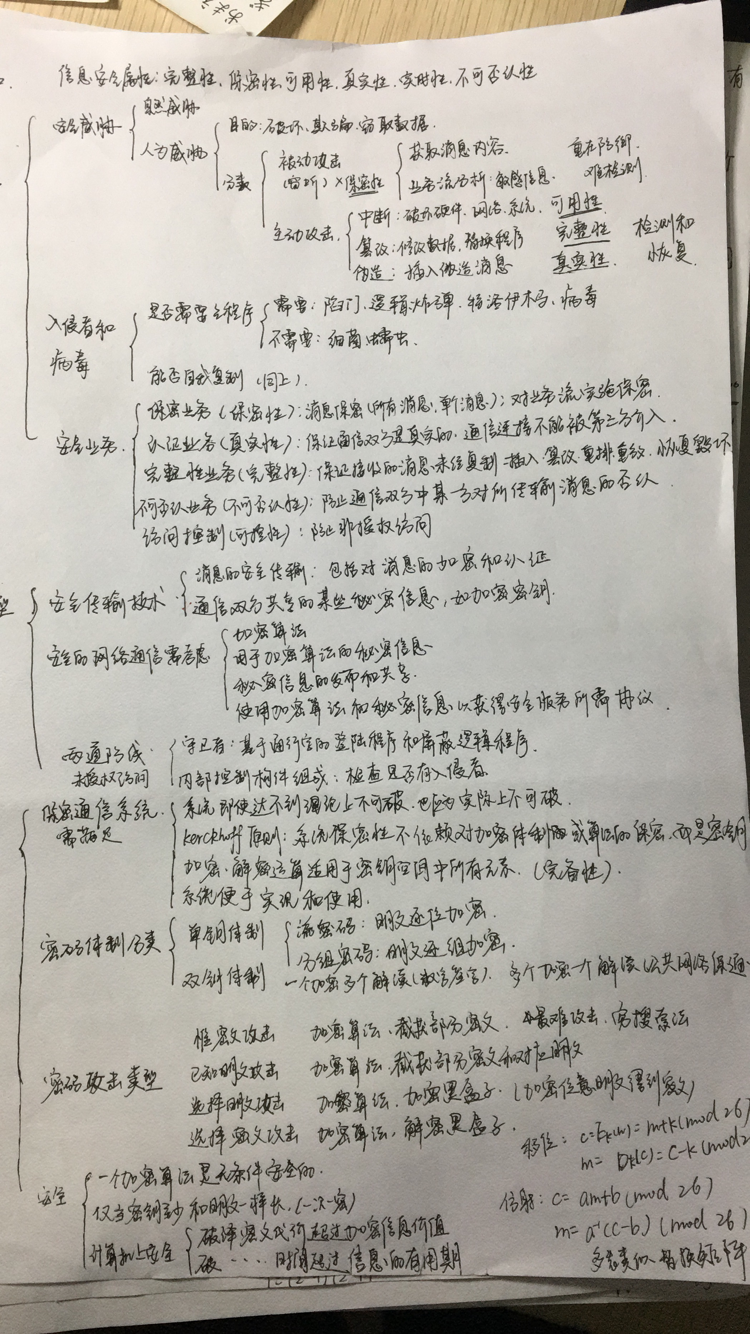 信息安全属性:完整性、保密性、可用性、真实性、实时性、不可否认性
安全威胁 自然威胁
人为威胁 目的:破坏、欺骗、窃取数据.
分类 被动攻击(窃听)×保密性 获取消息内容. 重在防御.
业务流分析:敏感信息. 难检测.
主动攻击. 中断:破坏硬件、网络、系统. 可用性
篡改:修改数据、替换程序 完整性 检测和
伪造:插入伪造消息 真实性. 恢复.
入侵者和病毒 是否需要主程序 需要:陷门、逻辑炸弹、特洛伊木马、病毒
不需要:细菌、蠕虫.
能否自我复制(同上).
安全业务. 保密业务(保密性):消息保密(所有消息,单个消息);对业务流实施保密.
认证业务(真实性):保证通信双方是真实的,通信连接不能被第三方介入.
完整性业务(完整性):保证接收的消息未经复制、插入、篡改、重排、重放、恢复毁坏
不可否认业务(不可否认性):防止通信双方中某一方对所传输消息的否认
访问控制(可控性):防止非授权访问
型 安全传输技术 消息的安全传输:包括对消息的加密和认证
通信双方共享的某些秘密信息,如加密密钥.
安全的网络通信需考虑 加密算法
用于加密算法的秘密信息
秘密信息的发布和共享.
使用加密算法和秘密信息以获得安全服务所需协议.
两道防线 未授权访问 守卫者:基于通行字的登陆程序和屏蔽逻辑程序.
内部控制构件组成:检查是否有入侵者.
保密通信系统需满足 系统即使达不到理论上不可破,也应为实际上不可破.
kerckhoff原则:系统保密性不依赖对加密体制或算法的保密,而是密钥
加密、解密运算适用于密钥空间中所有元素.(完备性).
系统便于实现和使用.
密码体制分类 单钥体制 流密码:明文逐位加密.
分组密码:明文逐组加密.
双钥体制 一个加密多个解读(数字签字).多个加密一个解读(公共网络保通
密码攻击类型 惟密文攻击 加密算法、截获部分密文. 最难攻击.穷搜索法
已知明文攻击 加密算法、截获部分密文和对应明文
选择明文攻击 加密算法、加密黑盒子.(加密任意明文得到密文)
选择密文攻击 加密算法,解密黑盒子.
移位:c=Ek(m)=m+k(mod 26)
m=Dk(c)=c-k(mod 2
安全 一个加密算法是无条件安全的.
仅当密钥至少和明文一样长.(一次一密)
仿射:c=am+b(mod 26)
计算机上安全 破译密文代价超过加密信息价值
m=a⁻¹(c-b)(mod 26)
破····时间超过信息的有用期
多表类似、替换矩阵